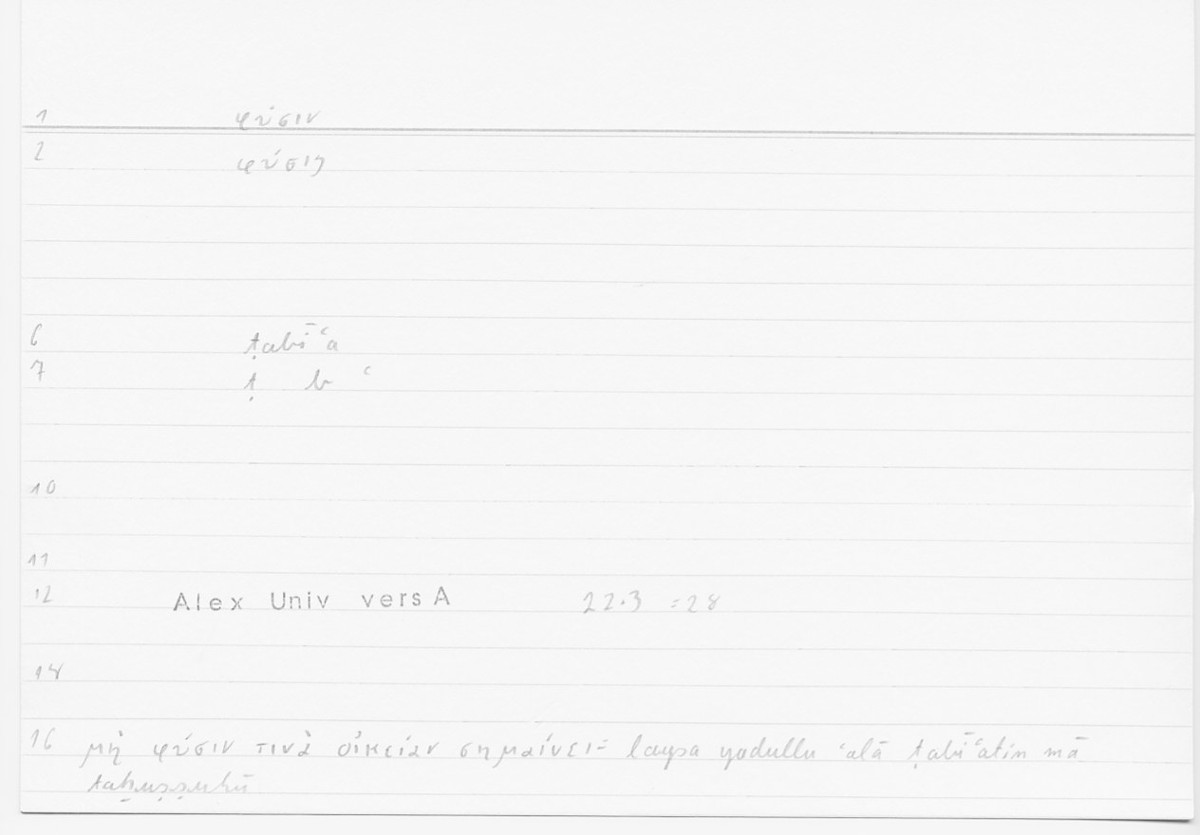 1 φύσιν
2 φύσις
6 ṭabīʿa
7 ṭ b ʿ
10
11
12 Alex Univ vers A 22.3 =28
14
16 μὴ φύσιν τινὰ οἰκείαν σημαίνει = laysa yadullu ʿalā ṭabīʿatin mā
taḫuṣṣuhū